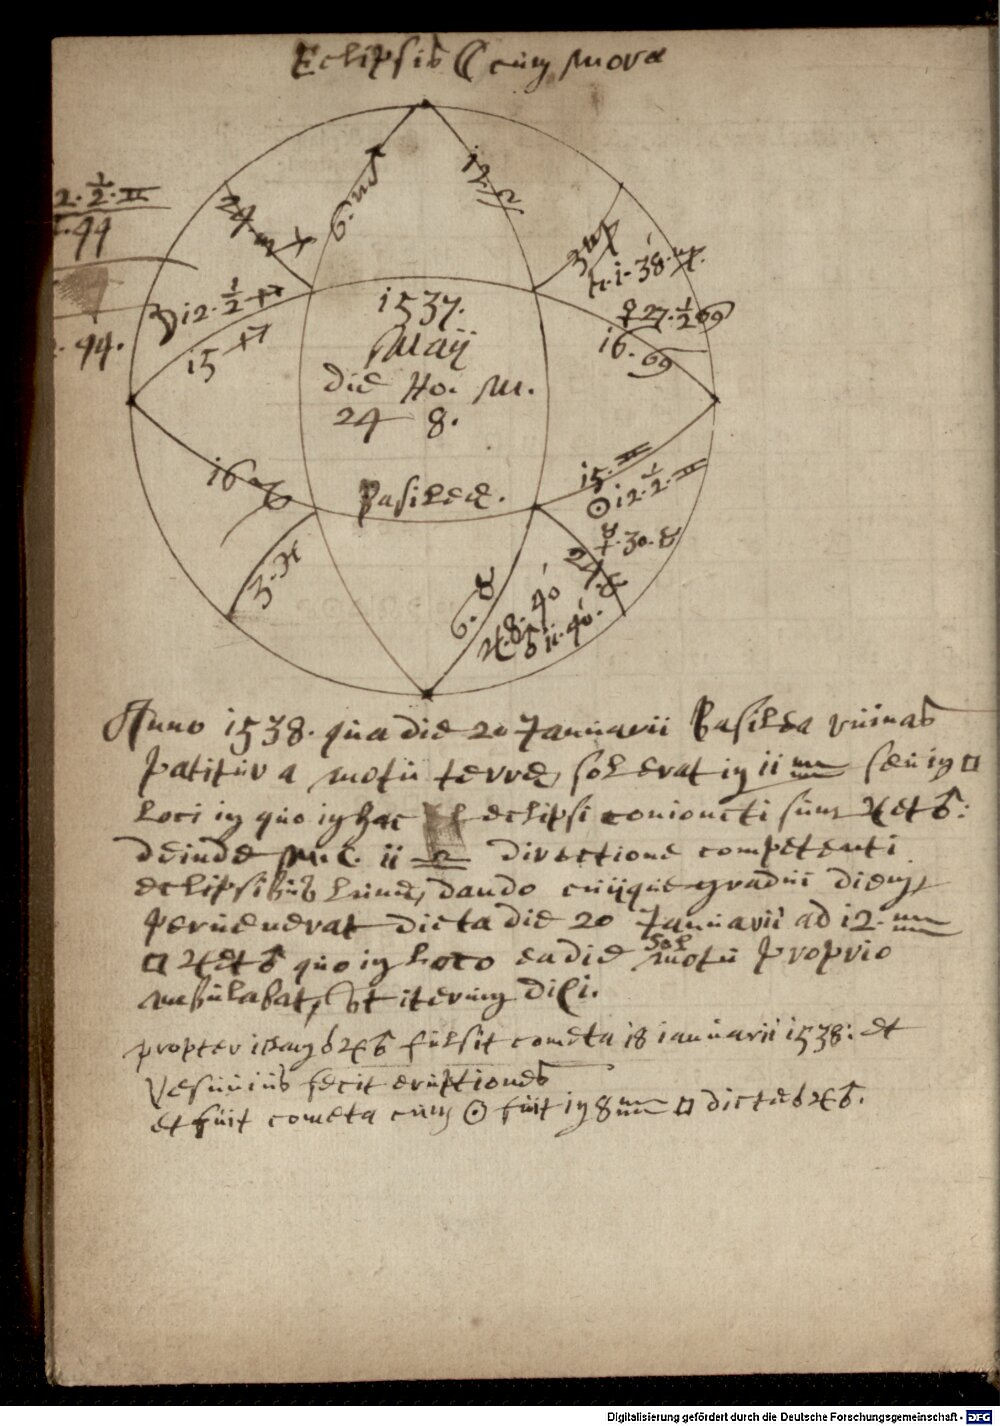 Eclipsis ☾ cum mora
2. ½. ♊
44
. 44.
24 ♏
6. ♏
12. ♎
3 ♍
♄. 1. 38. ♍.
☽ 12. ½ ♐
15 ♐
♀ 27. ½ ♋
16. ♋
1537.
Maij
Die Ho. M.
24 8.
Basileae.
16 ♑
3. ♓
6. ♉
15. ♊
☉ 12. ½. ♊
☿. 30. ♉
24. ♉
♃. 8. 40
♄ 11. 40.
Anno 1538. qua die 20 Januarii Basilea ruinas
patitur a motu terrae, sol erat in 11 ♒ seu in □
loci in quo in hac eclipsi coniuncti sunt ♃ et ♄:
deinde M. C. 11 ♎ directione competenti
eclipsibus lunae, dando cuique gradui diem
peruenerat dicta die 20 Januarii ad 12. ♒
□ ♃ et ♄ quo in loco ea die sol motu proprio
ambulabat, ut iterum dixi.
propter ☌ ♃ ♄ fulsit cometa 18 ianuarii 1538: et
Vesuuius fecit eruptiones
et fuit cometa cum ☉ fuit in 8 ♒ □ dictae ☌ ♃ ♄.
Digitalisierung gefördert durch die Deutsche Forschungsgemeinschaft - DFG